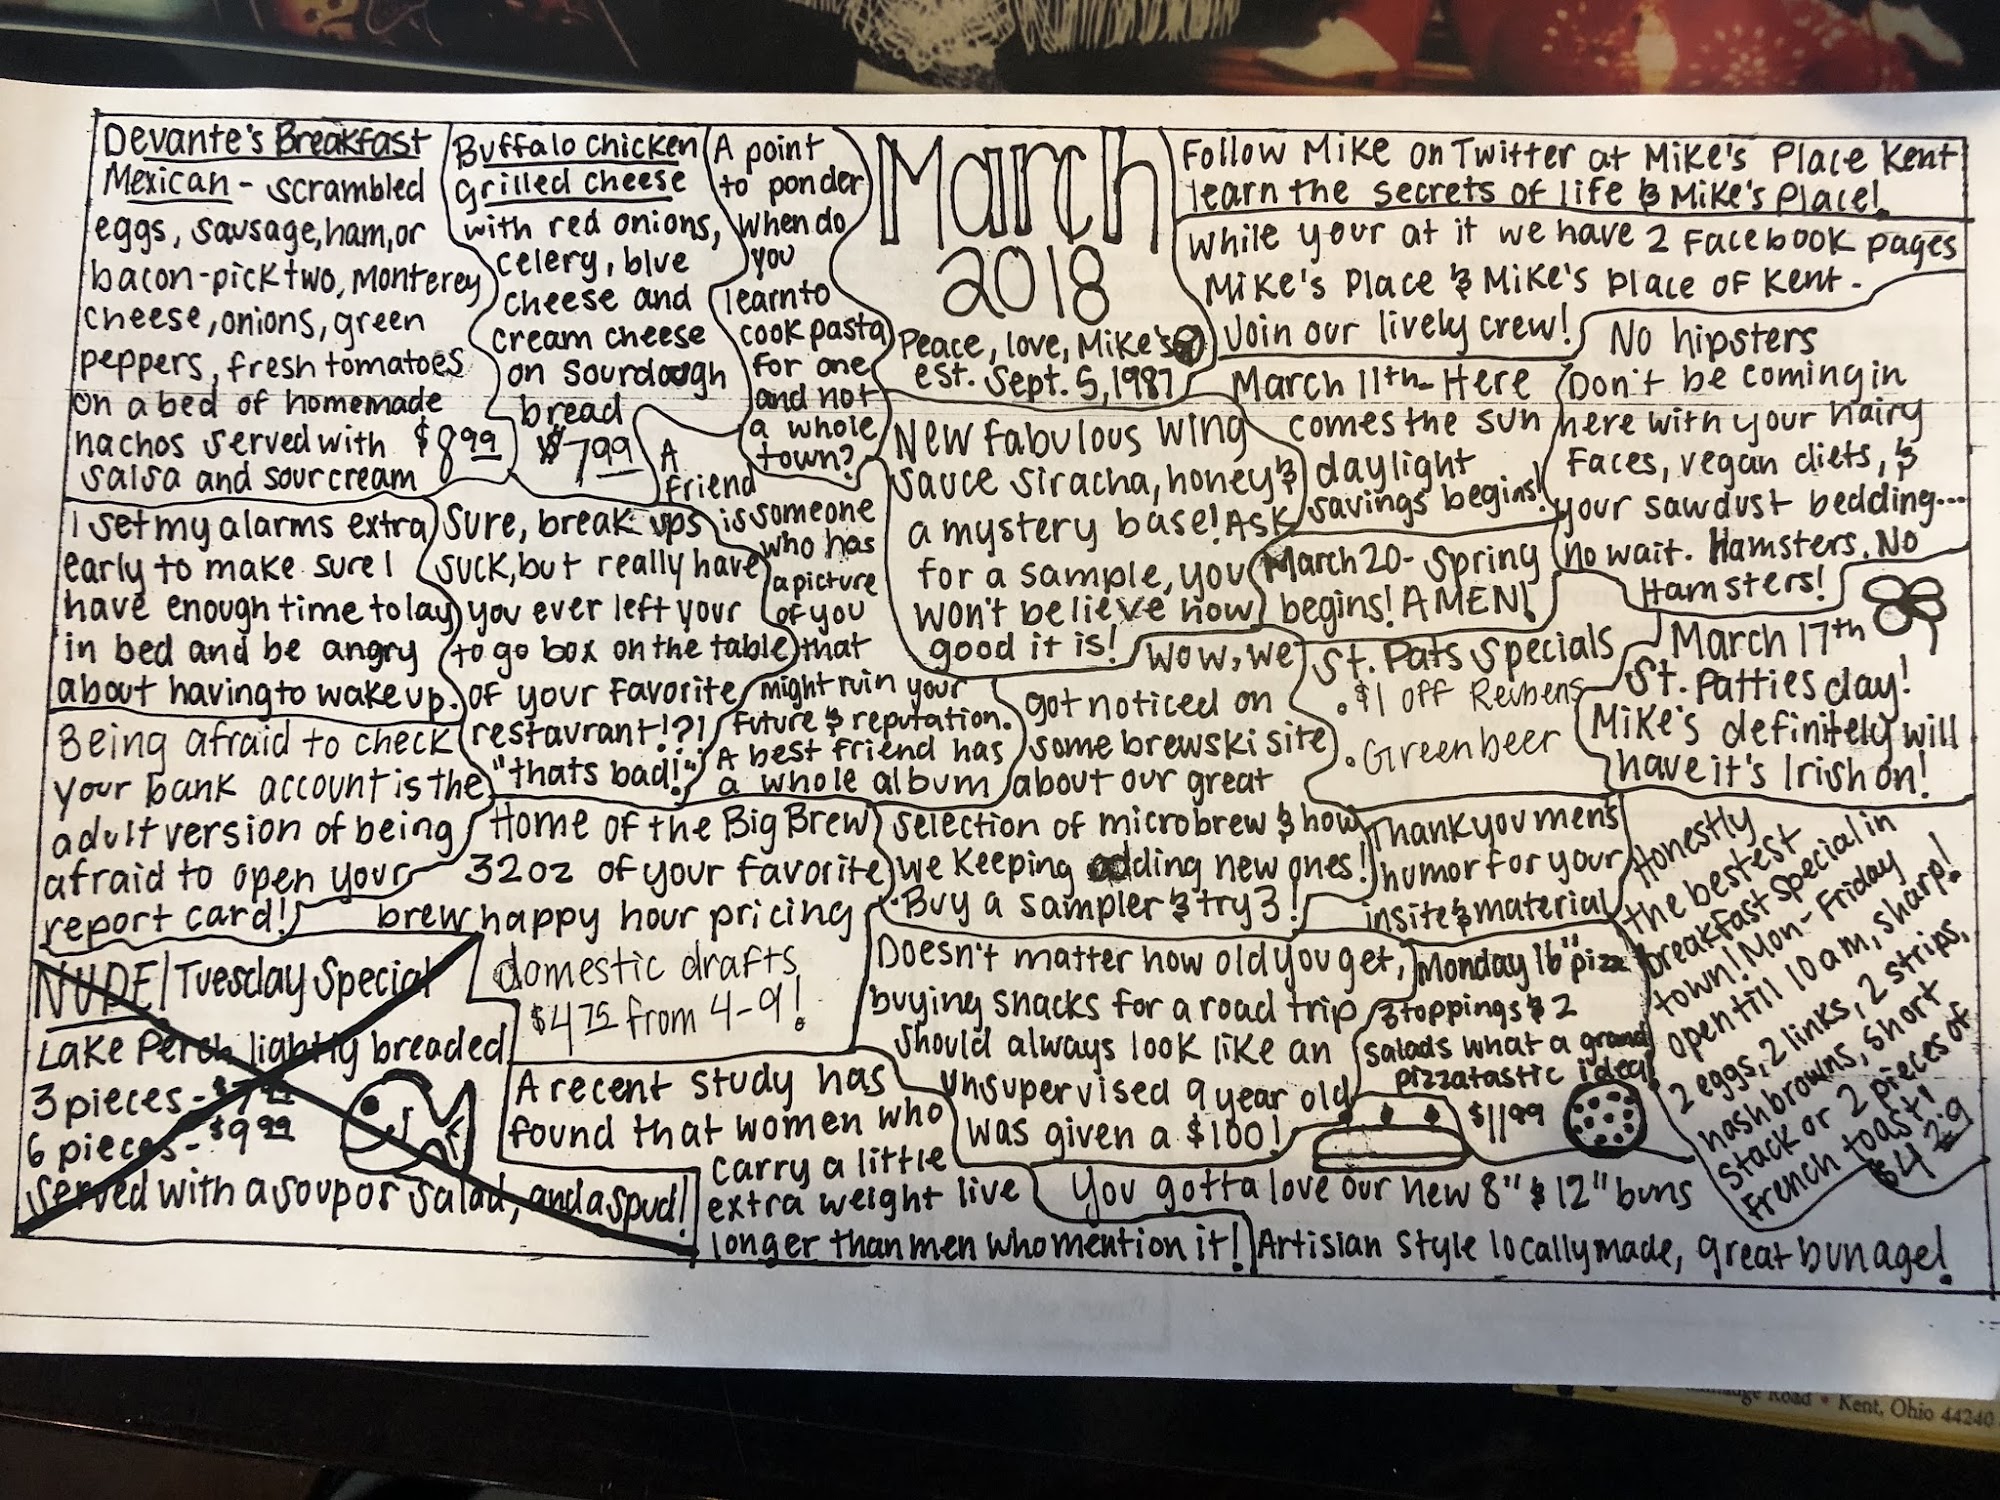 Devante's Breakfast
Mexican - scrambled
eggs, sausage, ham, or
bacon-pick two, Monterey
cheese, onions, green
peppers, fresh tomatoes
on a bed of homemade
nachos served with $8.99
salsa and sour cream
Buffalo Chicken
Grilled Cheese
with red onions,
celery, blue
cheese and
cream cheese
on Sourdough
bread
$7.99
A point
to ponder
When do
you
learn to
cook pasta
for one
and not
a whole
town?
March
2018
Peace, love, Mike's
est. Sept. 5, 1987
Follow Mike on Twitter at Mike's Place Kent
learn the secrets of life & Mike's Place!
While your at it we have 2 Facebook pages
Mike's Place & Mike's Place of Kent.
Join our lively crew!
No hipsters
Don't be coming in
here with your hairy
faces, vegan diets, &
your sawdust bedding...
no wait. Hamsters. No
Hamsters!
March 11th - Here
comes the sun
daylight
savings begins!
New fabulous wing
sauce siracha, honey &
a mystery base! Ask
for a sample, you
won't believe how
good it is!
March 20 - Spring
begins! AMEN!
A
friend
is someone
who has
a picture
of you
that
might ruin your
future & reputation.
A best friend has
a whole album
I set my alarms extra
early to make sure I
have enough time to lay
in bed and be angry
about having to wake up.
Sure, break ups
suck, but really have
you ever left your
to go box on the table
of your favorite
restaurant!?!
"thats bad!"
March 17th
St. Patties day!
Mike's definitely will
have it's Irish on!
St. Pats Specials
. $1 off Reubens
. Green beer
Wow, we
got noticed on
some brewski site
about our great
selection of microbrew & how
we keeping adding new ones!
Buy a sampler & try 3!
Being afraid to check
your bank account is the
adult version of being
afraid to open your
report card!
Home of the Big Brew
32oz of your favorite
brew happy hour pricing
domestic drafts
$4.75 from 4-9!
Thank you mens
humor for your
insite & material
Honestly
the bestest
breakfast special in
town! Mon-Friday
open till 10am, sharp!
2 eggs, 2 links, 2 strips,
hashbrowns, short
stack or 2 pieces of
french toast!
$4.29
NUDE! Tuesday Special
Lake Perch lightly breaded
3 pieces -
6 pieces - $9.99
served with a soup or salad, and a spud!
Doesn't matter how old you get,
buying snacks for a road trip
should always look like an
unsupervised 9 year old
was given a $100!
Monday 16" pizza
3 toppings & 2
salads what a grand
pizzatastic idea!
$11.99
A recent study has
found that women who
carry a little
extra weight live
longer than men who mention it!
You gotta love our new 8" & 12" buns
Artisian style locally made, great bun age!
Road • Kent, Ohio 44240